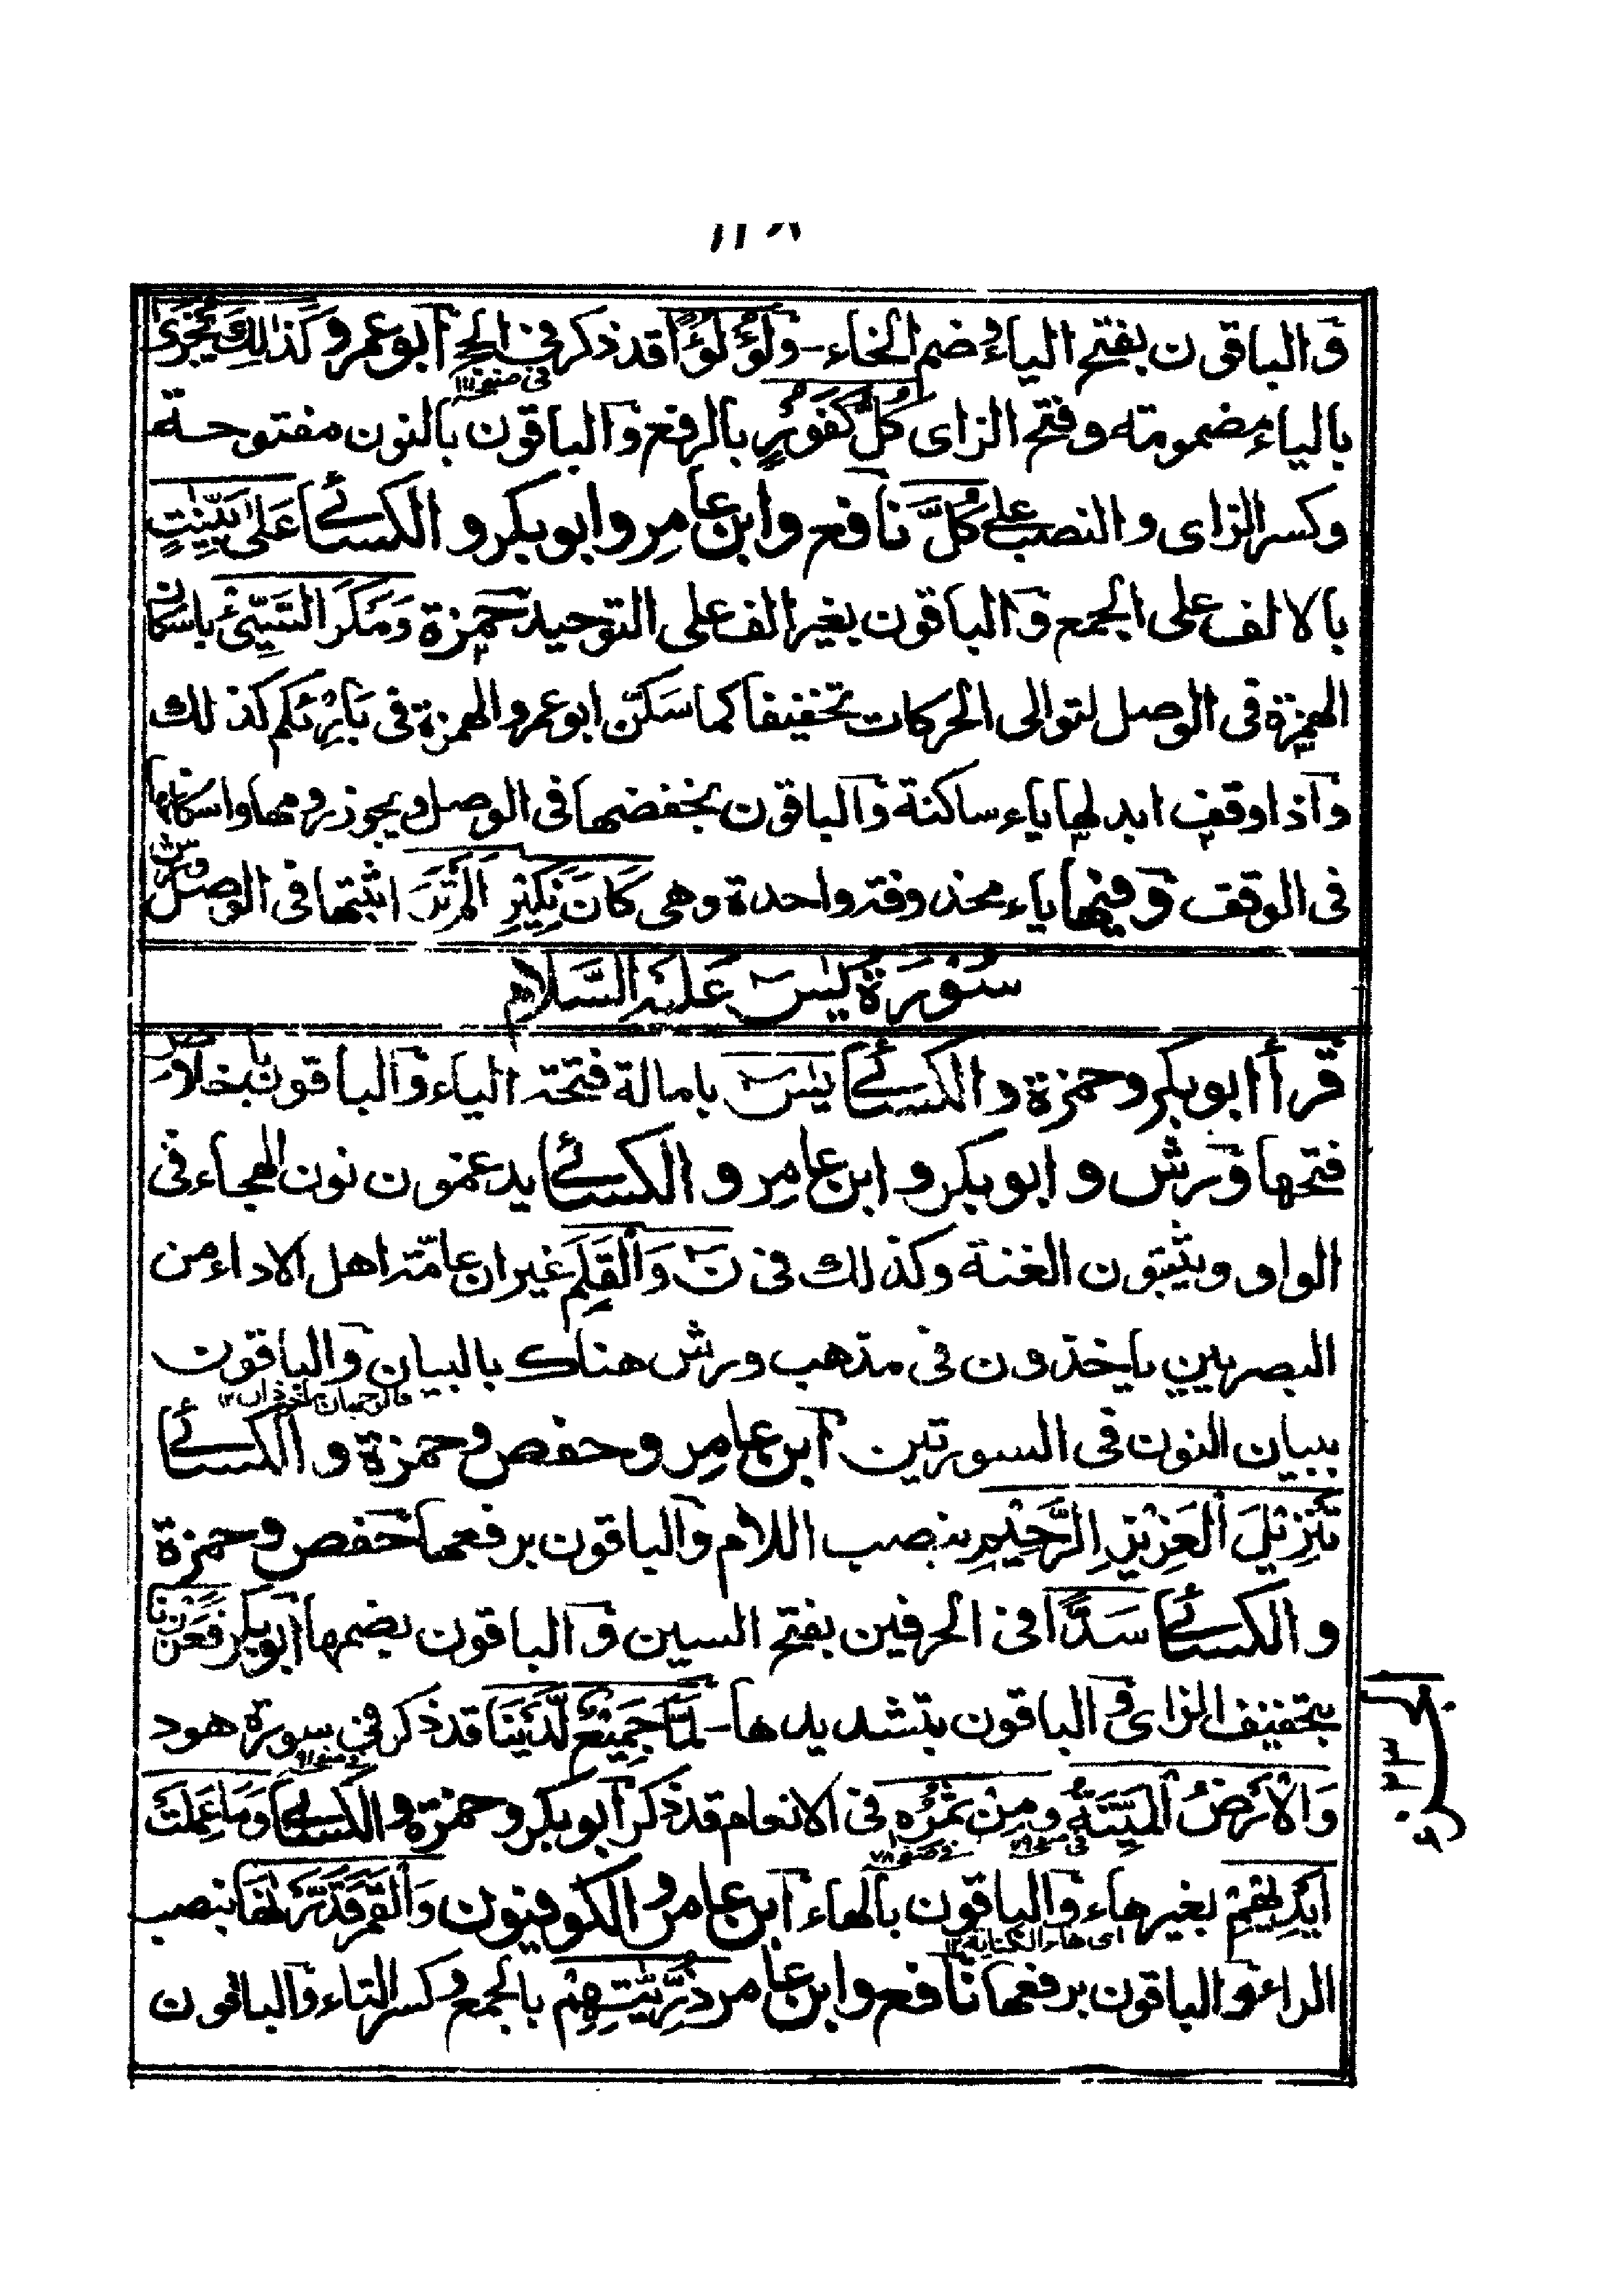 والباقون بفتح الياء وضم الخاء - ولؤلؤا قد ذكر في الحج ابو عمرو كذلك يجزى
في صفحة ١١٧
بالياء مضمومة وفتح الزاى كل كفور بالرفع والباقون بالنون مفتوحة
وكسر الزاى والنصب على كل نافع وابن عامر وابو بكر والكسائى على بينت
بالالف على الجمع والباقون بغير الف على التوحيد حمزة ومكر السيئ باسكان
الهمزة في الوصل لتوالى الحركات تخفيفا كما سكن ابو عمرو الهمزة في بارئكم كذلك
واذا وقف ابدلها ياء ساكنة والباقون بخفضها في الوصل ويجوز رومها واسكانها
في الوقف وفيها ياء محذوفة واحدة وهى كان نكير الم تر اثبتها في الوصل ورش
سُوْرَةُ يٰسٓ عَلَيْهِ السَّلَام
قرأ ابو بكر وحمزة والكسائى يٰسٓ بامالة فتحة الياء والباقون باخلاص
فتحها ورش وابو بكر وابن عامر والكسائى يدغمون نون الهجاء في
الواو ويثبتون الغنة وكذلك في نٓ والقلم غير ان عامة اهل الاداء من
البصريين ياخذون في مذهب ورش هناك بالبيان والباقون
ببيان النون في السورتين ابن عامر وحفص وحمزة والكسائى
تنزيل العزيز الرحيم بنصب اللام والباقون برفعها حفص وحمزة
والكسائى سدا في الحرفين بفتح السين والباقون بضمها ابو بكر فعززنا
بتخفيف الزاى والباقون بتشديدها - لما جميع لدينا قد ذكر في سورة هود
والارض الميتة ومن ثمره في الانعام قد ذكر ابو بكر وحمزة والكسائى وما عملت
في صفحة ٧٨
ايديهم بغير هاء والباقون بالهاء ابن عامر والكوفيون والقمر قدرنه بنصب
اى هاء الكناية ١٢
الراء والباقون برفعها نافع وابن عامر ذريتهم بالجمع وكسر التاء والباقون